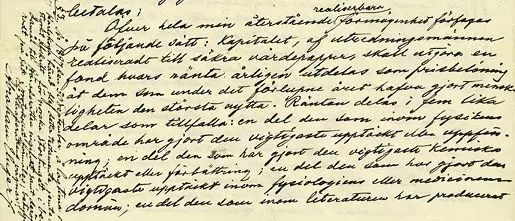 utdelas;
realiserbara
Öfver hela min återstående förmögenhet förfogas
på följande sätt: Kapitalet, af utredningsmännen
realiseradt till säkra värdepapper, skall utgöra en
fond hvars ränta årligen utdelas som prisbelöning
åt dem som under det förlupne året hafva gjort mensk-
ligheten den största nytta. Räntan delas i fem lika
delar som tillfalla: en del den som inom fysikens
område har gjort den vigtigaste upptäckt eller uppfin-
ning; en del den som har gjort den vigtigaste kemiska
upptäckt eller förbättring; en del den som har gjort den
vigtigaste upptäckt inom fysiologiens eller medicinens
domän; en del den som inom literaturen har producerat